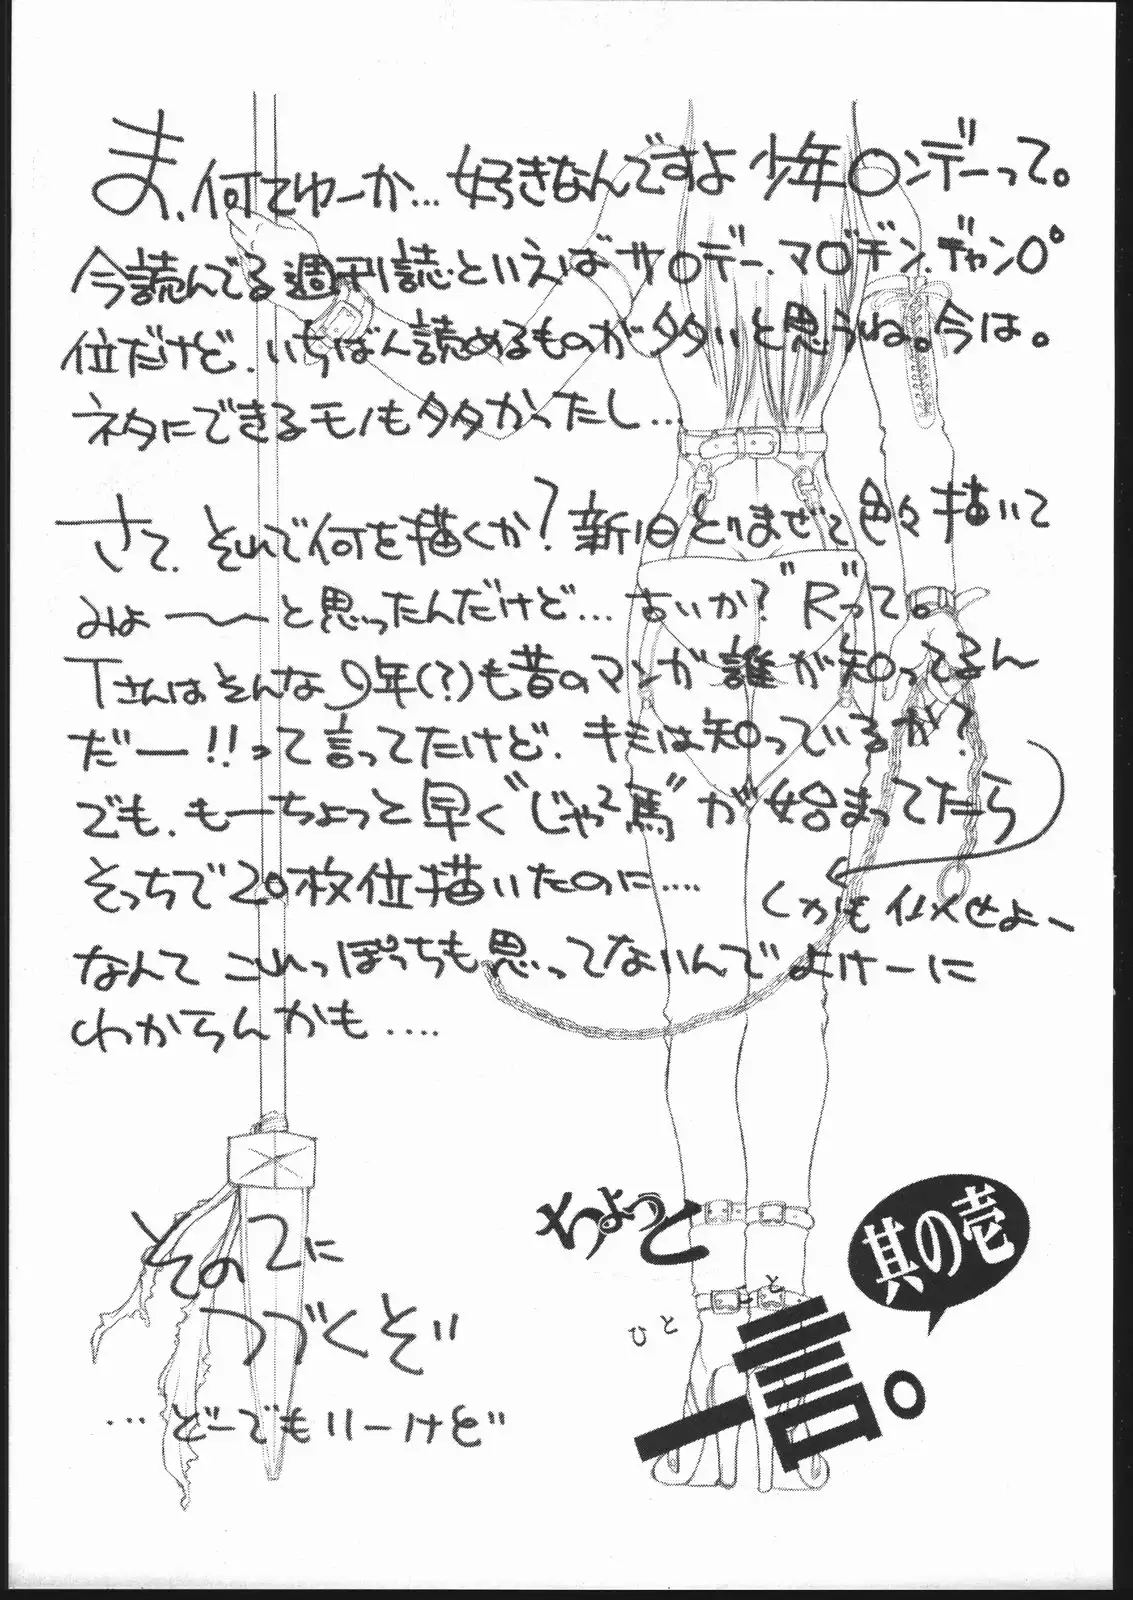 ま、何てゆーか…好きなんですよ少年○ンデーって。
今読んでる週刊誌といえばサ○デー、マ○ヂン、ヂャン○゜
位だけど、いちばん読めるものが多いと思うね。今は。
ネタにできるモノも多かったし…
さて、それで何を描くか?新旧とりまぜて色々描いて
みよ〜〜と思ったんだけど…古いか?"R"って。
Tさんはそんな9年(?)も昔のマンガ誰が知ってるん
だー!!って言ってたけど、キミは知っているか?
でも、もーちょっと早く"じゃ馬"が始まってたら
そっちで20枚位描いたのに….
しかも 仏メせよ〜
なんて これっぽっちも思ってないんで よけーに
わからんかも….
その2に
つづくぞ!!
…どーでもいーけど
ちょっと
ひとこと
一言。
其の壱